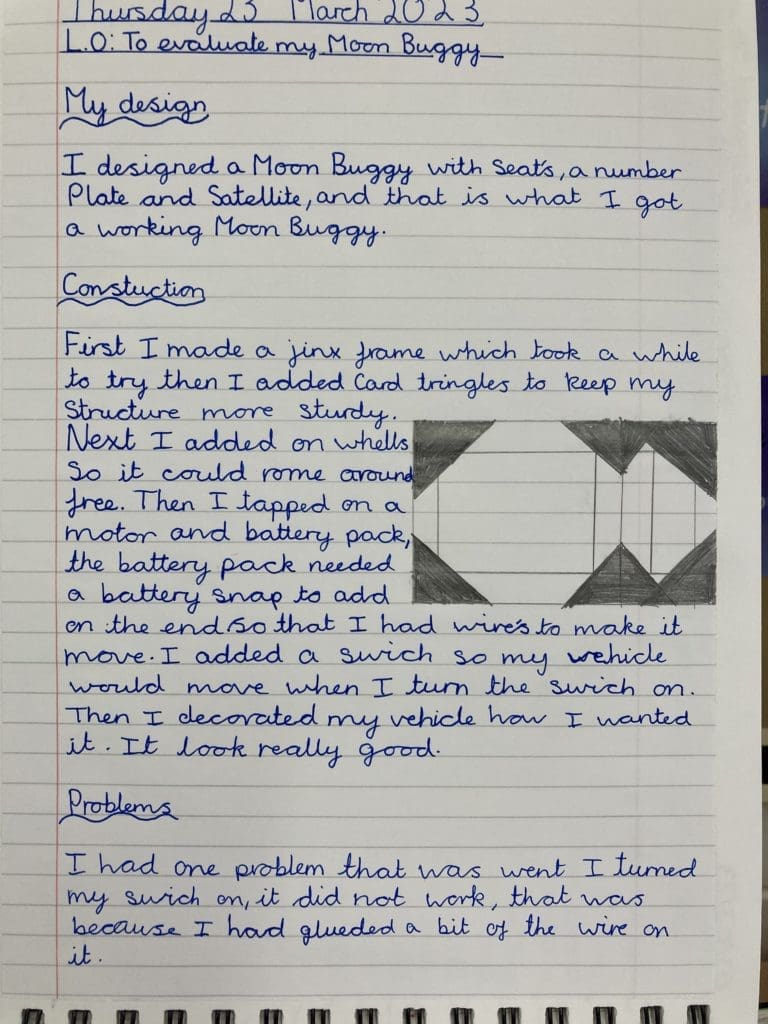 Thursday 23 March 2023
L.O: To evaluate my Moon Buggy
My design
I designed a Moon Buggy with Seat's, a number
Plate and Satellite, and that is what I got
a working Moon Buggy.
Constuction
First I made a jinx frame which took a while
to try then I added Card tringles to keep my
Structure more sturdy.
Next I added on whells
So it could rome around
free. Then I tapped on a
motor and battery pack,
the battery pack needed
a battery snap to add
on the end so that I had wire's to make it
move. I added a swich so my vehicle
would move when I turn the swich on.
Then I decorated my vehicle how I wanted
it. It look really good.
Problems
I had one problem that was went I turned
my swich on, it did not work, that was
because I had glueded a bit of the wire on
it.